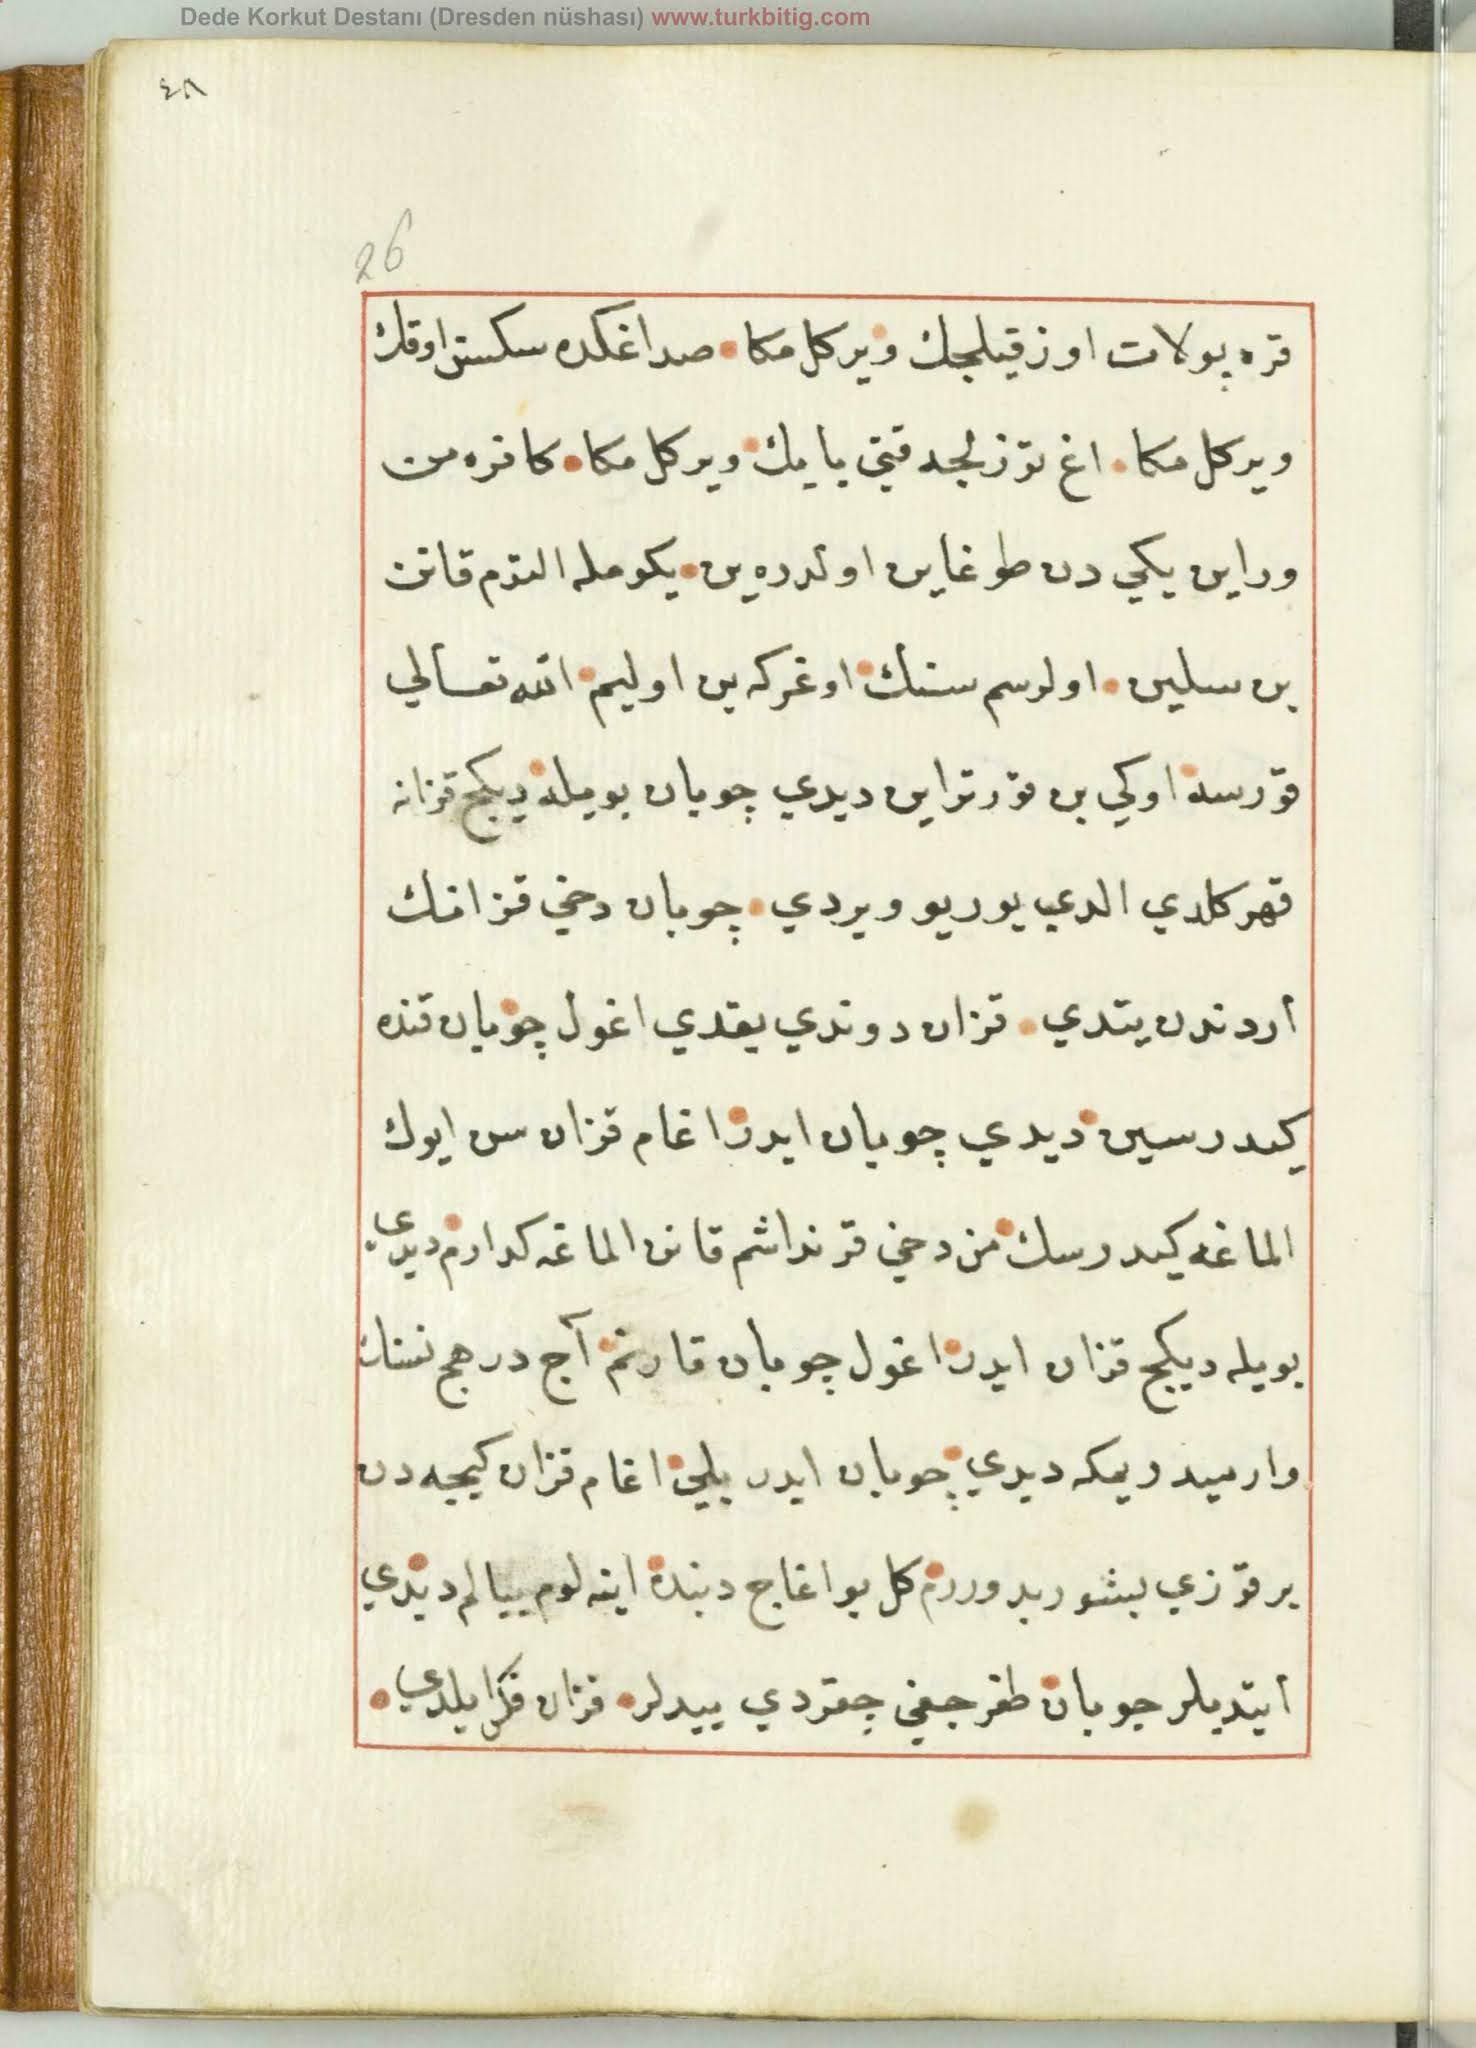 Dede Korkut Destanı (Dresden nüshası) www.turkbitig.com
٤٨
26
قره پولات اوز قيلجك ويركل مكا صداغكده سكسن اوقك
ويركل مكا اغ توزلجه قتى يايك ويركل مكا كافره من
وراين يكي دن طوغاين اولدرەين يكومله النوم قانن
بن سلين اولرسم سنك اوغركه بن اوليم الله تعالي
قورسه اوكي بن قورتراين ديدي چوبان بويله ديكج قزانه
قهر كلدي الدي يوريو ويردي چوبان دخي قزانك
أردندن يتدي قزان دوندي بقدي اغول چوبان قنده
كيدرسين ديدي چوبان ايدر اغام قزان سن ايوك
الماغه كيدرسك من دخي قرنداشم قانن الماغه كدارم ديدي
بويله ديكج قزان ايدر اغول چوبان قارنم آج در هج نسنك
وارميدر يمكه ديدي چوبان ايدر بلي اغام قزان كيجه دن
بر قوزي بشوربدوررم كل بو اغاج دبنده اينه لوم ييالم ديدي
أينديلر چوبان طغرجغي چقردي ييدلر قزان فكر ايلدي